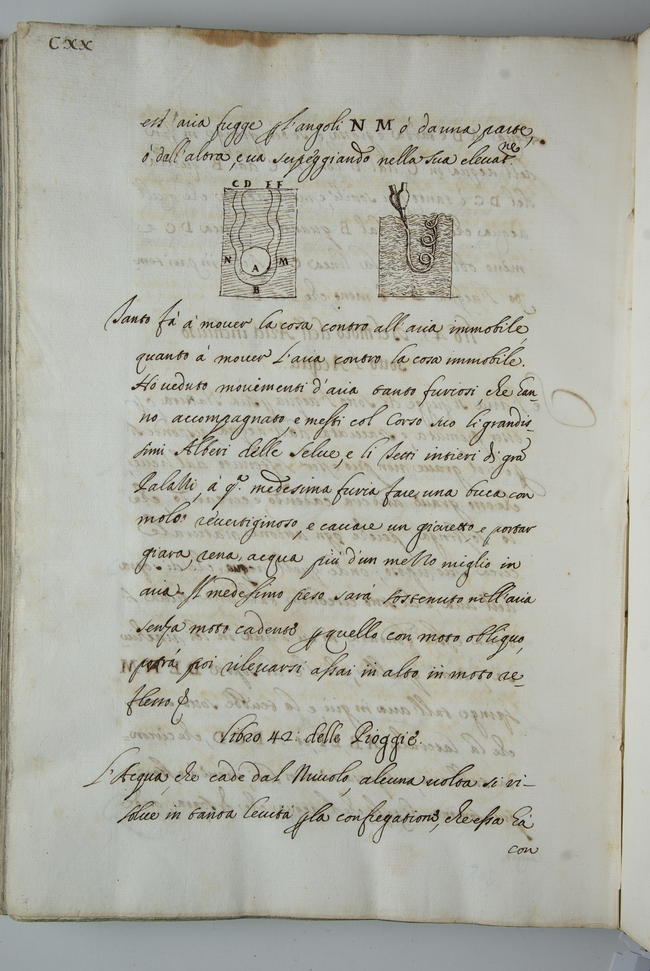 CXX
est' aria fugge p l'angoli N M ó da una parte,
ó dall'altra, e va serpeggiando nella sua elevat.ne
C D E F
N A M
B
Tanto fà á mover la cosa contro all'aria immobile,
quanto á mover l'aria contro la cosa immobile.
Hò veduto movimenti d'aria tanto furiosi, che han-
no accompagnato, e misti col Corso suo li grandis-
simi Alberi delle Selve, e li Tetti intieri di gra
Palazzi, á q.a medesima furia fare una buca con
moto revertiginoso, e cavare un giaretto, e portar
giara, rena, acqua più d'un mezzo miglio in
aria. Il medesimo peso sará sostenuto nell'aria
senza moto cadente p quello con moto obliquo,
potrá poi rilevarsi assai in alto in moto re-
flesso
Libro 42: delle Pioggie.
L'Acqua, che cade dal Nuvolo, alcuna volta si ri-
solve in tanta levità p la confregatione, che essa hà
con